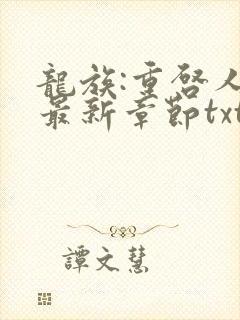 龍族:重啓人
最新章節txt
譚文慧